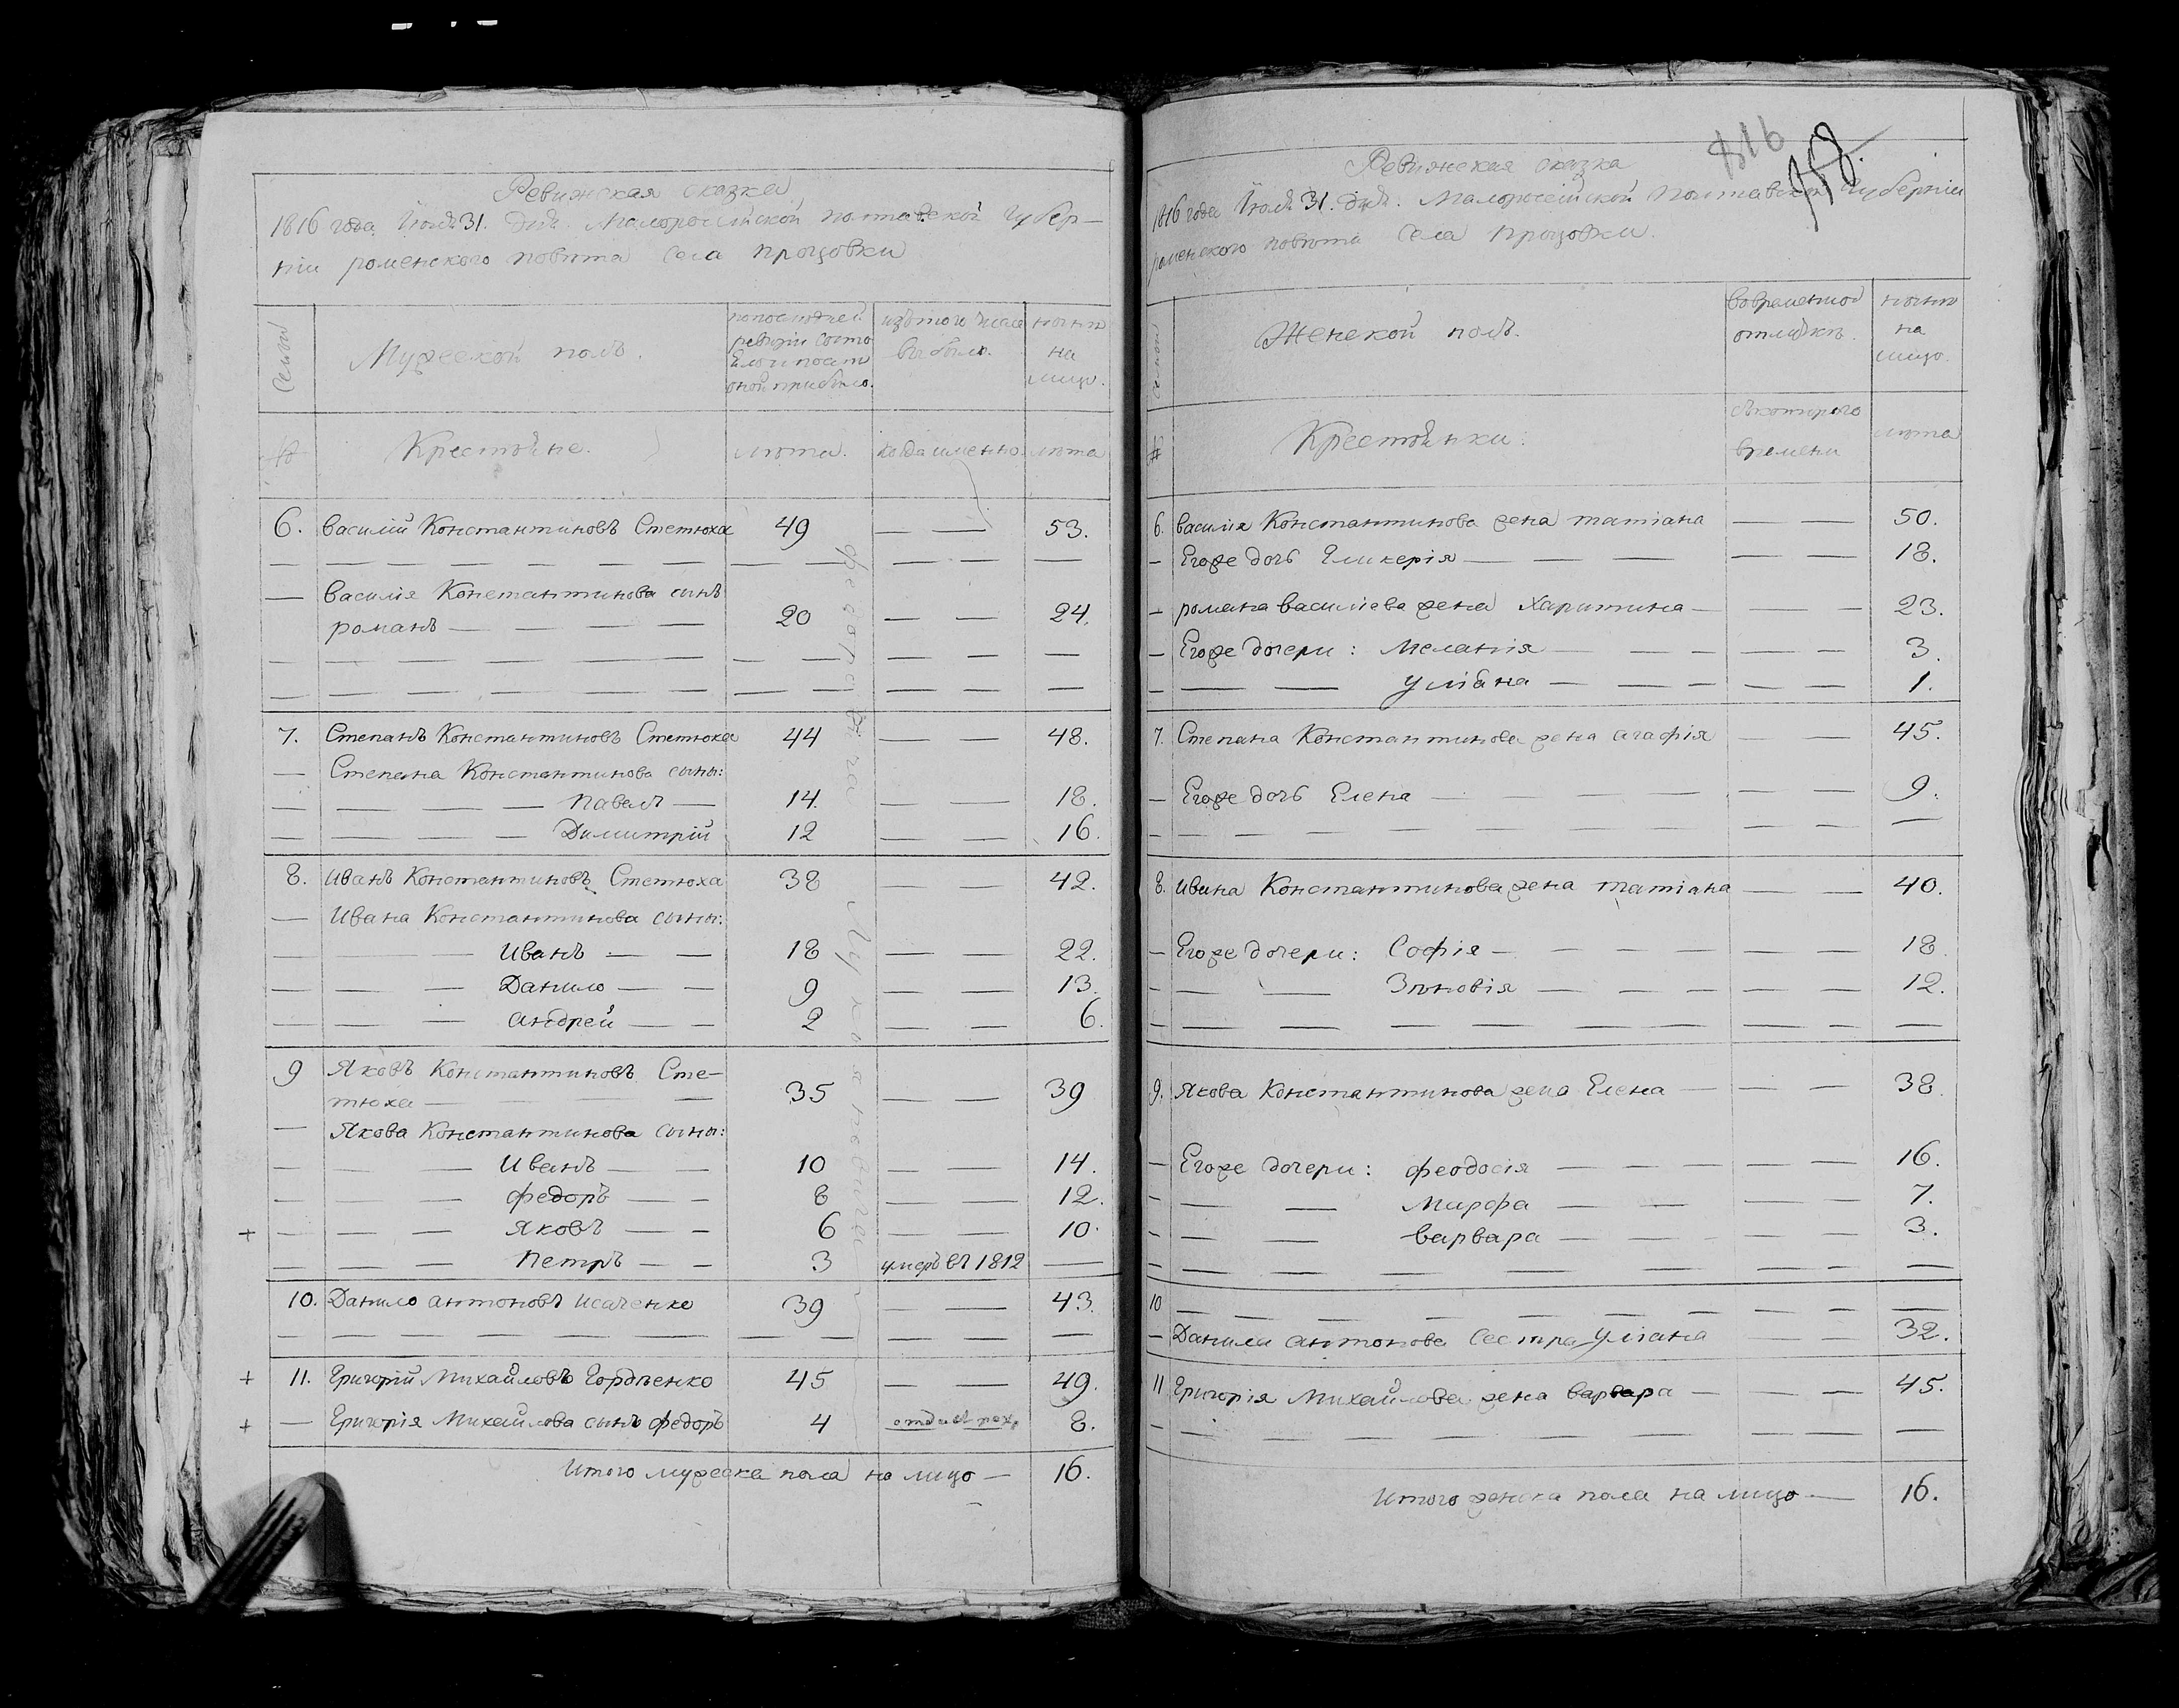 Ревизская сказка
1816 года Июля 31. дня. Малороссійской Полтавской Губер-
ніи роменского повѣта Села Процовки
Семьи
Мужеской полъ.
попоследней
ревизіи состо
яло и послѣ
оной прибыло.
изътого числа
выбыло.
нынѣ
на
лицо.
№
Крестьяне.
лѣта.
когда именно.
лѣта
6. василій Константиновъ Стетюха 49 — — 53.
— василія Константинова сынъ
романъ — 20 — — 24.
7. Степанъ Константиновъ Стетюха 44 — — 48.
— Степана Константинова сыны:
Павелъ — 14. — — 18.
Димитрій 12 — — 16.
8. Иванъ Константиновъ Стетюха 38 — — 42.
— Ивана Константинова сыны:
Иванъ — 18 — — 22.
Данило — 9 — — 13.
андрей — 2 — — 6.
9 Яковъ Константиновъ Сте-
тюха — 35 — — 39
— Якова Константинова сыны:
Иванъ — 10 — — 14.
федоръ — 8 — — 12.
+ Яковъ — 6 — — 10.
Петръ — 3 умеръ въ 1812 —
10. Данило антоновъ Исаченко 39 — — 43.
+ 11. Григорій Михайловъ Гордѣенко 45 — — 49.
+ — Григорія Михайлова сынъ федоръ 4 8.
Итого мужеска пола на лицо — 16.
816
Ревизская сказка
1816 года Июля 31. дня. Малороссійской Полтавской Губерніи
роменского повѣта Села Процовки.
Семьи
Женской полъ.
вовременной
отлучкѣ.
нынѣ
на
лицо.
№
Крестьянки.
съкоторого
времени
лѣта
6. василія Константинова жена татіана — — 50.
— Егоже дочь Гликерія — — — 18.
— романа василіева жена Харитина — — — 23.
— Егоже дочери: Меланія — — — 3.
Уліана — — — 1.
7. Степана Константинова жена агафія — — 45.
— Егоже дочь Елена — — — 9.
8. Ивана Константинова жена татіана — — 40.
— Егоже дочери: Софія — — — 18
Зѣновія — — — 12.
9. Якова Константинова жена Елена — — 38.
— Егоже дочери: феодосія — — — 16.
Марфа — — — 7.
варвара — — — 3.
10
— Данила антонова сестра Уліана — — 32.
11 Григорія Михайлова жена варвара — — — 45.
Итого женска пола на лицо — 16.